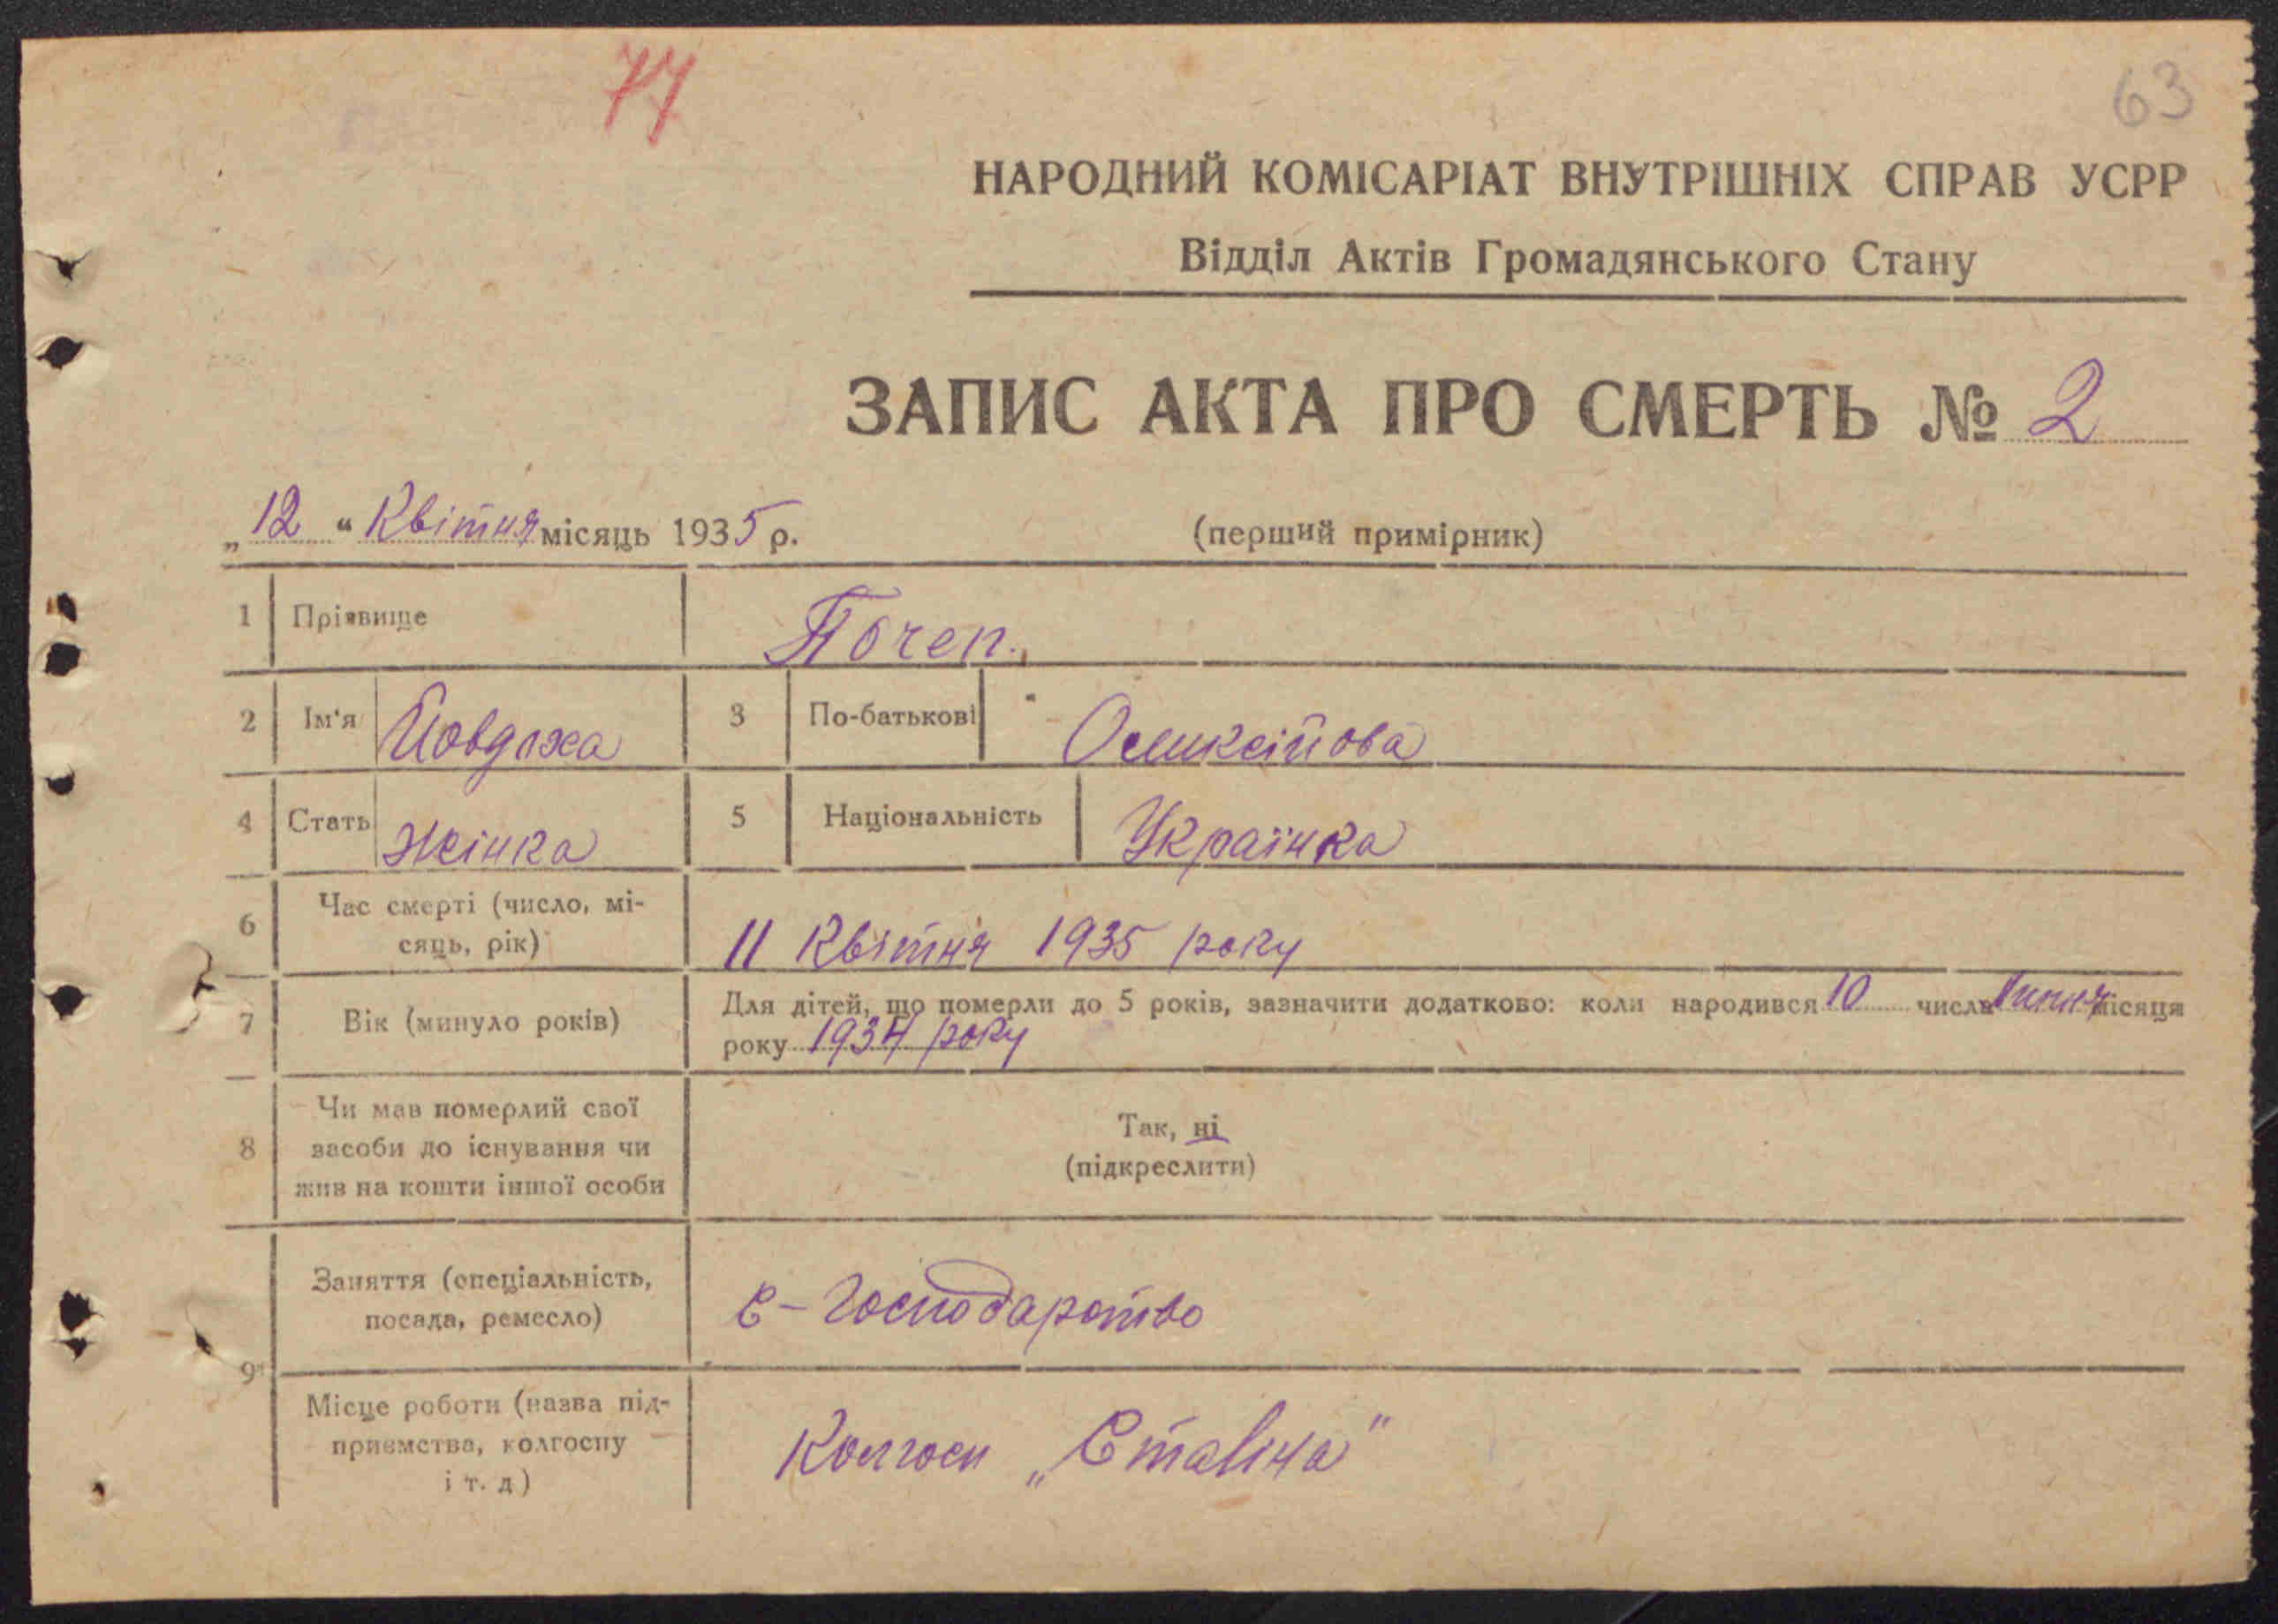 77
63
НАРОДНИЙ КОМІСАРІАТ ВНУТРІШНІХ СПРАВ УСРР
Відділ Актів Громадянського Стану
ЗАПИС АКТА ПРО СМЕРТЬ № 2
„12“ Квітня місяць 1935 р.
(перший примірник)
1 Прізвище Почеп.
2 Ім'я 3 По-батькові
4 Стать жінка 5 Національність Українка
6 Час смерті (число, мі-
сяць, рік) 11 Квітня 1935 року
7 Вік (минуло років) Для дітей, що померли до 5 років, зазначити додатково: коли народився 10 числа місяця
року 1934 року
8 Чи мав померлий свої
засоби до існування чи
жив на кошти іншої особи
Так, ні
(підкреслити)
9 Заняття (спеціальність,
посада, ремесло) С-Господарство
Місце роботи (назва під-
приємства, колгоспу
і т. д)
Колгосп „Сталіна"